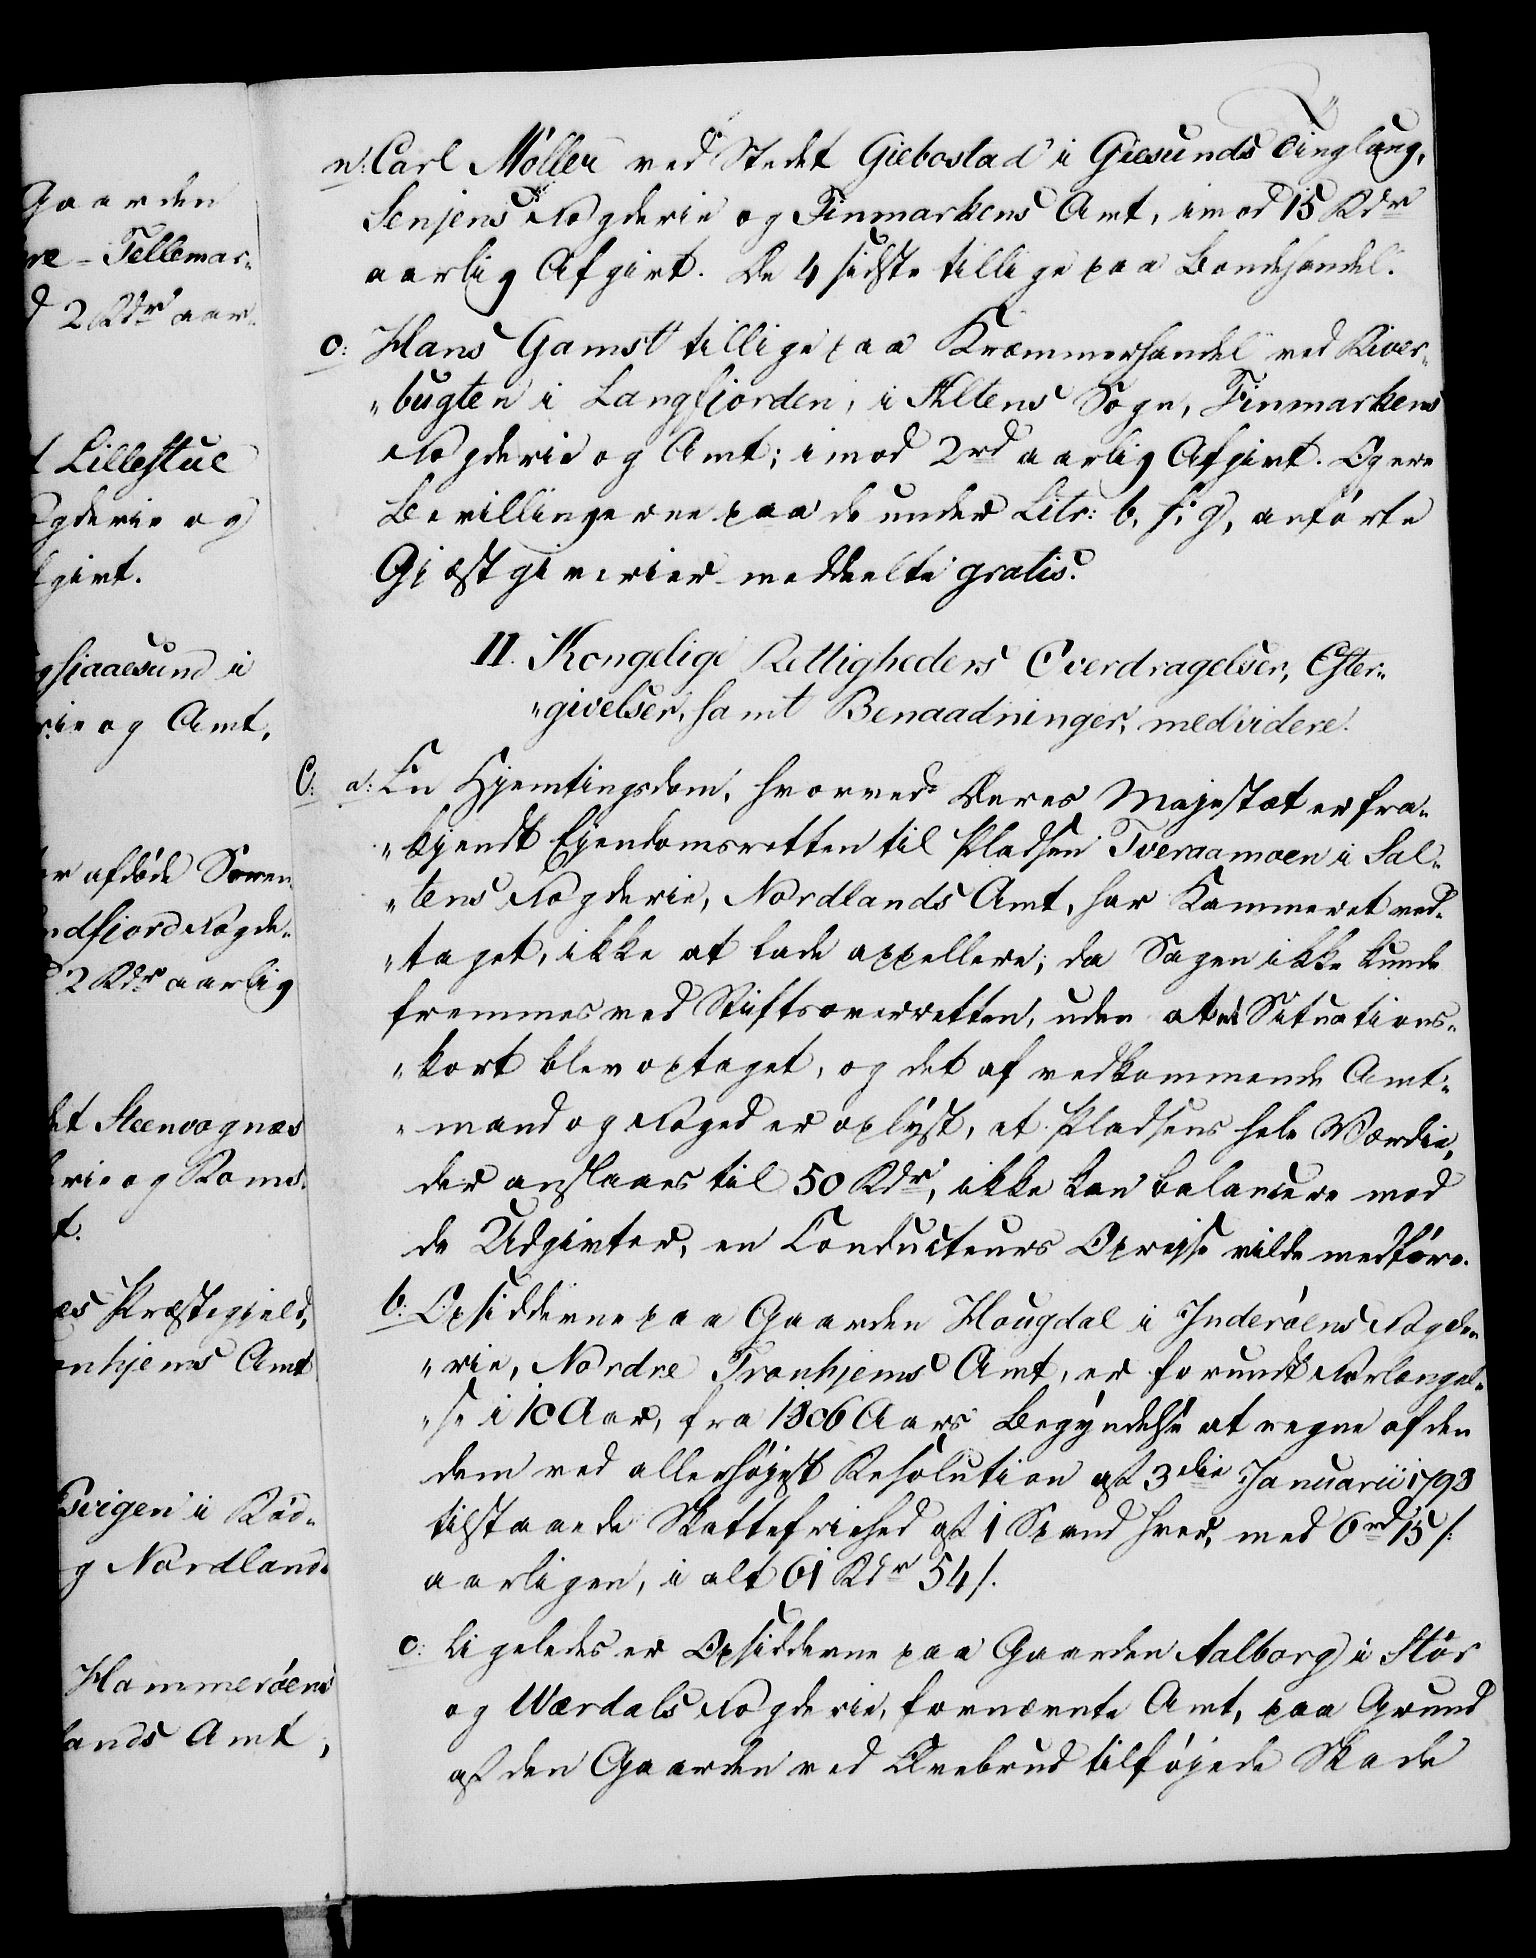 Gaarden
re-Tellemar„
d 2 Rdr aar„
Lillestue
ogderie og
fgivt.
gsiaaesund i
rie og Amt,
er afdøde Søren
ndfjord Fogde„
d 2 Rdr aarlig
det Steenvognæs
erie og Roms„
t.
æs Præstegield,
onhjems Amt
Svigen i Rød„
g Nordlands
Hammerøens
lands Amt,
n: Carl Møller ved Stedet Giebostad i Giesunds Tinglaug,
Senjens Fogderie og Finmarkens Amt, imod 15 Rdr
aarlig Afgivt. De 4 sidste tillige paa Bondehandel.
o: Hans Gamst tillige paa Kræmmerhandel ved River„
„bugten i Langfjorden, i Altens Sogn, Finmarkens
Fogderie og Amt; imod 2rd aarlig Afgivt. Og ere
Bevillingerne paa de under Litr: b, f, g, anførte
Gjæstgiverier meddeelte gratis.
II. Kongelige Rettigheders Overdragelser, Efter„
„givelser, samt Benaadninger, medvidere.
C: a: En Hjemtingsdom, hvorved Deres Majestæt er fra„
„kjendt Ejendomsretten til Pladsen Tveraamoen i Sal„
„tens Fogderie, Nordlands Amt, har Kammeret ved„
„taget, ikke at lade appellere, da Sagen ikke kunde
fremmes ved Stiftsoverretten, uden at et Situations„
„kort blev optaget, og det af vedkommende Amt„
„mand og Foged er oplyst, at Pladsens hele Værdie,
der anslaaes til 50 Rdr, ikke kan balancere mod
de Udgivter, en Conducteurs Oprejse vilde medføre.
b: Opsidderne paa Gaarden Hougdal i Inderøens Fogde„
„rie, Nordre Tronhjems Amt, er forundt Forlængel„
„se i 10 Aar, fra 1806 Aars Begyndelse at regne af den
dem ved allerhøjest Resolution af 3die Januarii 1793
tilstaaede Skattefriehed af 1 Spand hver, med 6rd 15 s.
aarligen, i alt 61 Rdr 54 s.
c: Ligeledes er Opsidderne paa Gaarden Aalborg i Stør
og Værdals Fogderie, fornævnte Amt, paa Grund
af den Gaarden ved Elvebrud tilføjede Skade